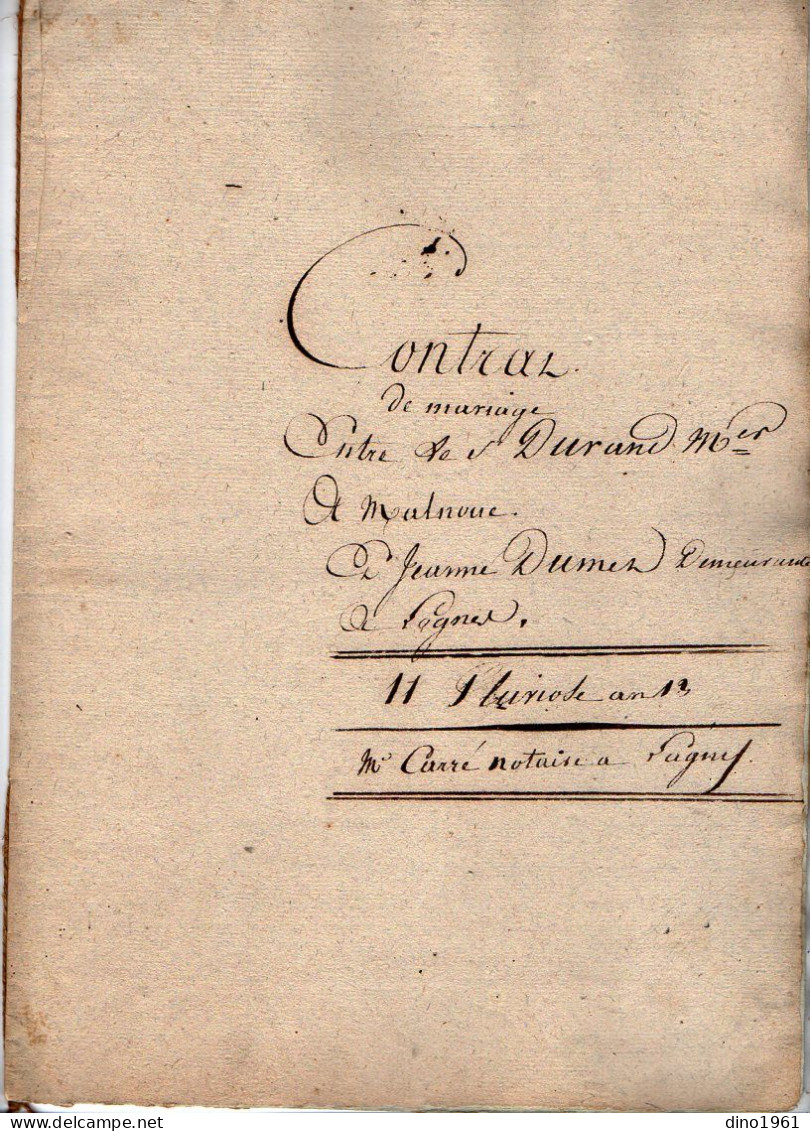 Contrat
de mariage
Entre le S Durand Mer
A Malnoue.
Et Jeanne Dumet Demeurante
a Lognes.
11 Pluviose an 13
Me Carré notaire a Lagny
dino1961